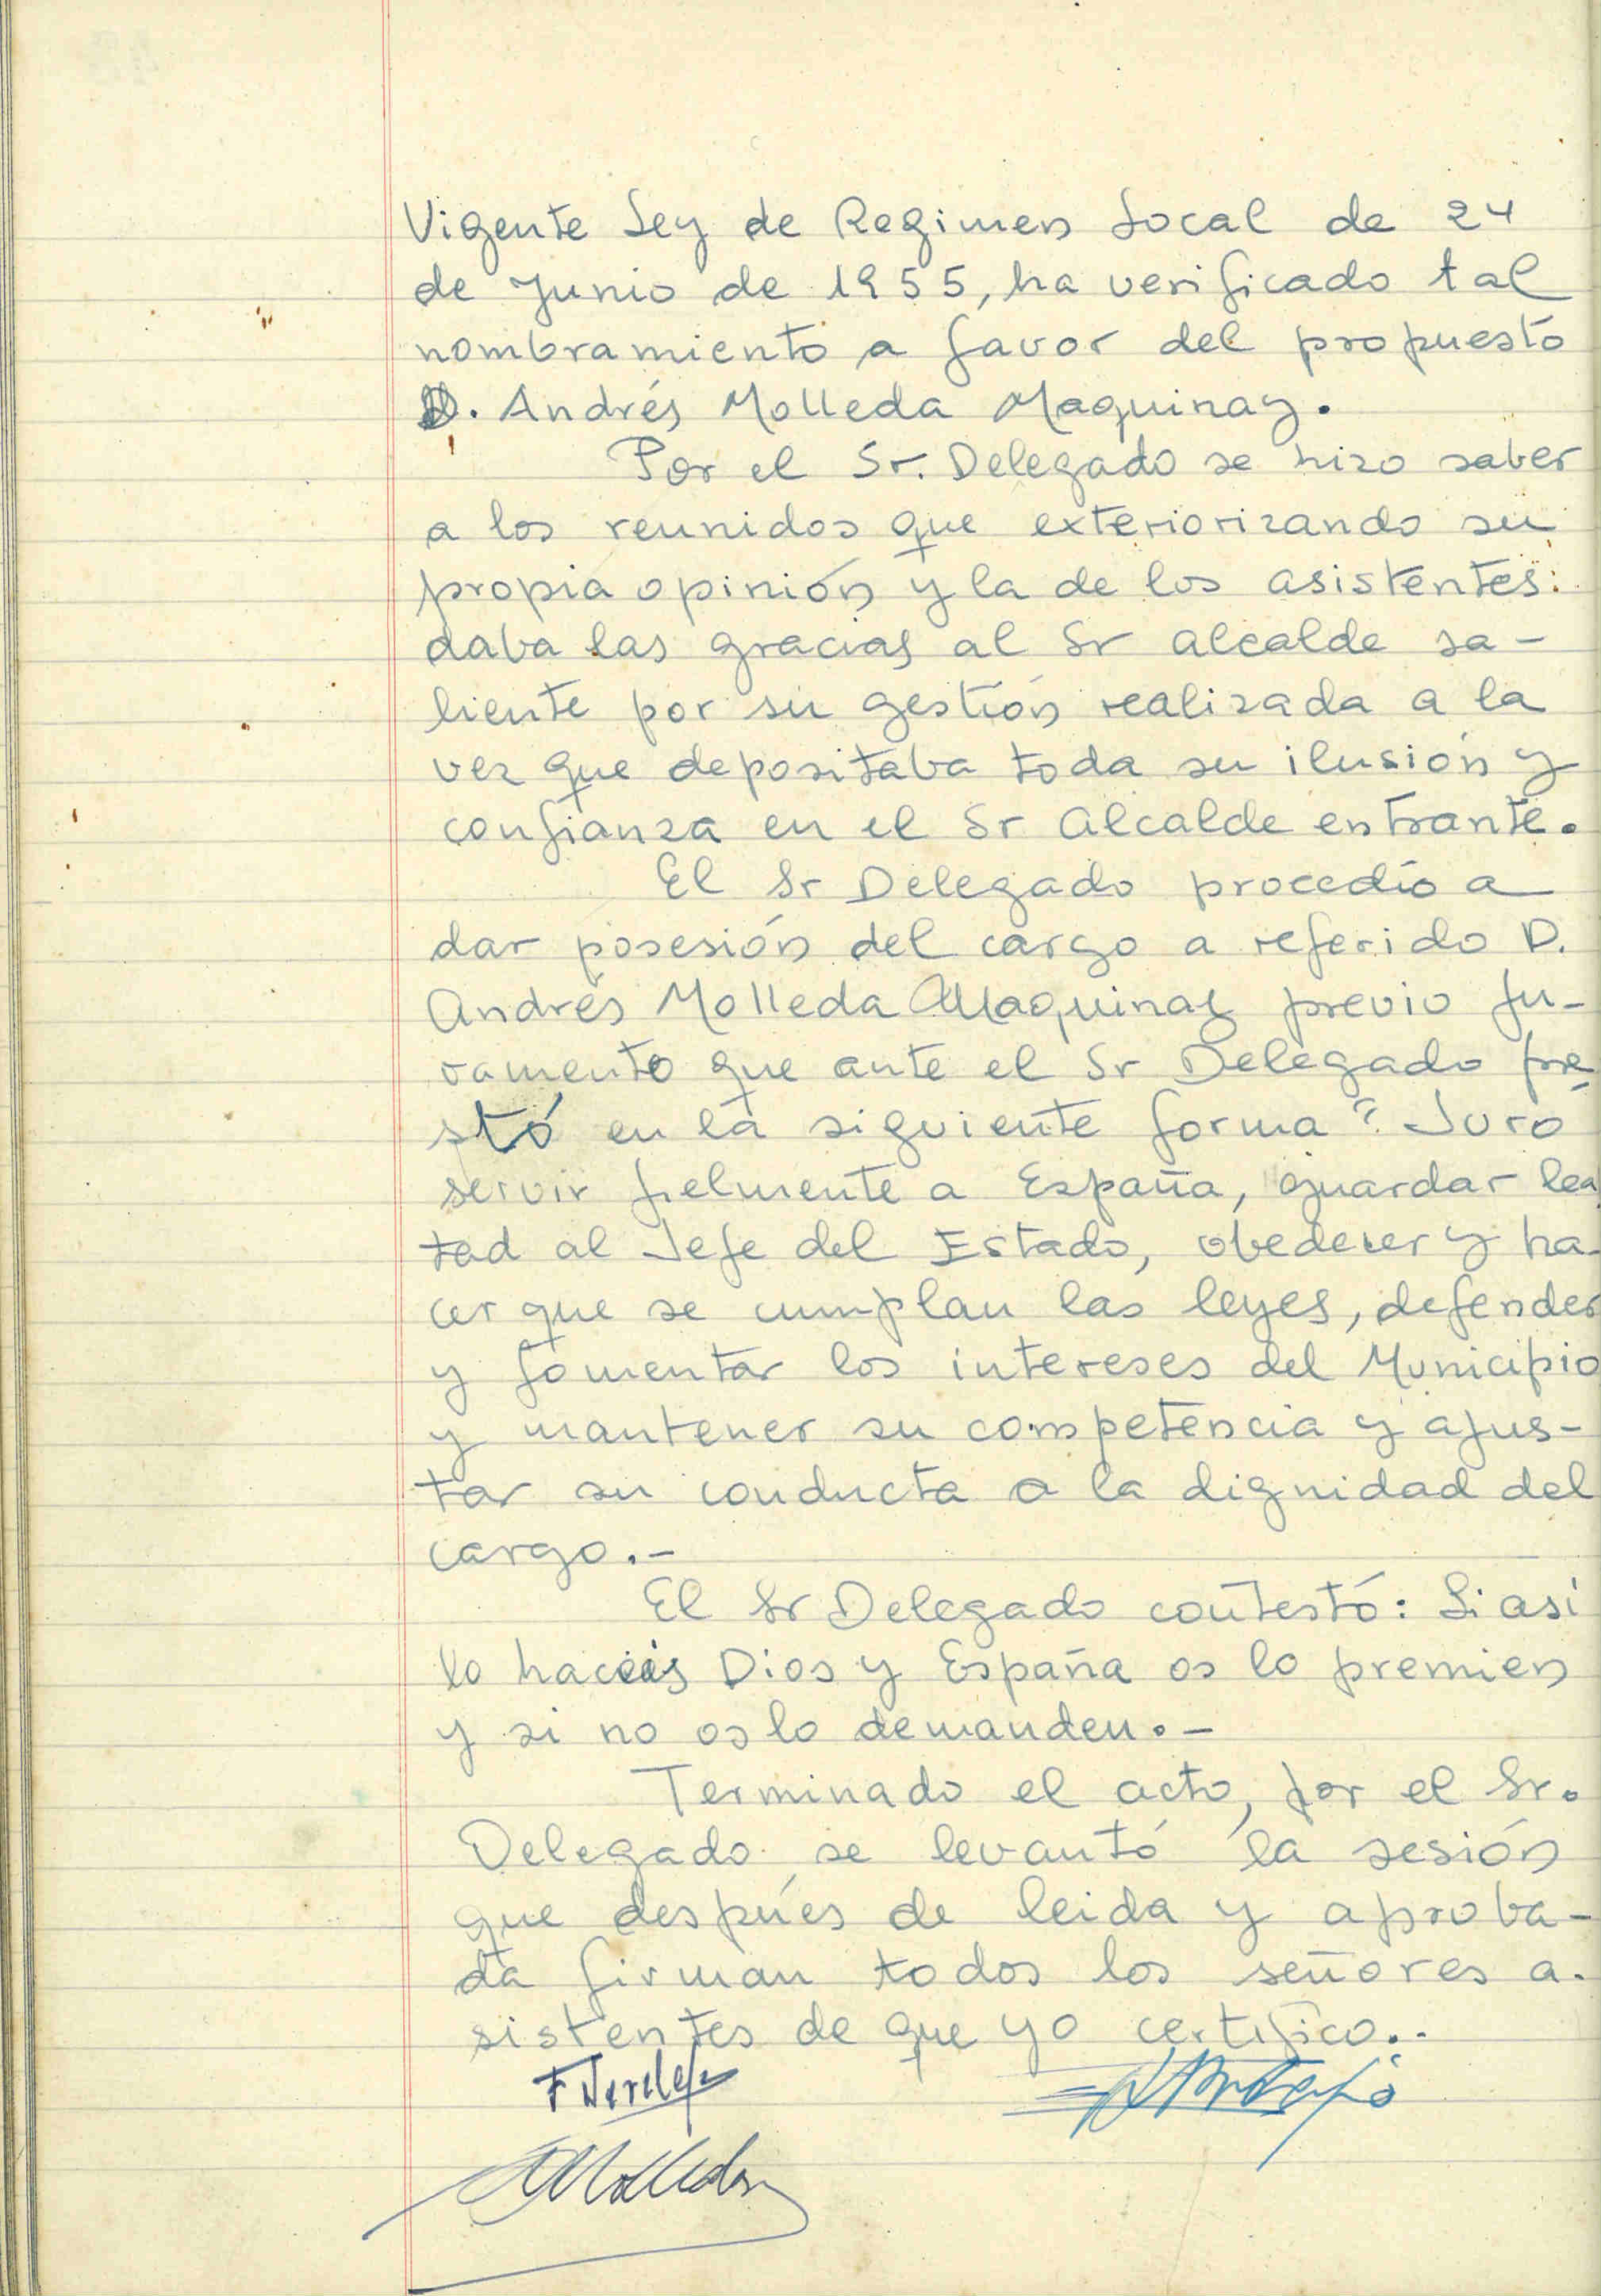 Vigente Ley de Regimen Local de 24
de Junio de 1955, ha verificado tal
nombramiento a favor del propuesto
D. Andrés Molleda Maquinay.
Por el Sr. Delegado se hizo saber
a los reunidos que exteriorizando su
propia opinión y la de los asistentes:
daba las gracias al Sr alcalde sa-
liente por su gestión realizada a la
vez que depositaba toda su ilusión y
confianza en el Sr Alcalde entrante.
El Sr Delegado procedió a
dar posesión del cargo a referido D.
Andrés Molleda Maquinay previo ju-
ramento que ante el Sr Delegado pre-
stó en la siguiente forma "Juro
servir fielmente a España, guardar leal
tad al Jefe del Estado, obedecer y ha-
cer que se cumplan las leyes, defender
y fomentar los intereses del Municipio
y mantener su competencia y ajus-
tar su conducta a la dignidad del
cargo.-
El Sr Delegado contestó: Si asi
lo haceis Dios y España os lo premien
y si no os lo demanden.-
Terminado el acto, por el Sr.
Delegado se levantó la sesión
que despúes de leida y aproba-
da firman todos los señores a-
sistentes de que yo certifico..
AMolleda